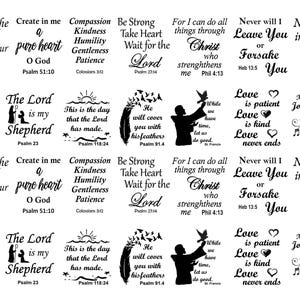 Create in me
a
pure heart
O God
Psalm 51:10
Compassion
Kindness
Humility
Gentleness
Patience
Colossians 3:12
Be Strong
Take Heart
Wait for the
Lord
Psalm 27:14
For I can do all
things through
Christ
who
strengthens
me Phil 4:13
Never will I
Leave You
or
Forsake
Heb 13:5 You
The Lord
is my
Shepherd
Psalm 23
This is the day
that the Lord
has made.
Psalm 118:24
He will
cover you
with his
feathers
Psalm 91.4
While
we
have
time,
let us
do good.
St. Francis
Love
is patient
Love
is kind
Love
never ends
Create in me
a
pure heart
O God
Psalm 51:10
Compassion
Kindness
Humility
Gentleness
Patience
Colossians 3:12
Be Strong
Take Heart
Wait for the
Lord
Psalm 27:14
For I can do all
things through
Christ
who
strengthens
me Phil 4:13
Never will I
Leave You
or
Forsake
Heb 13:5 You
The Lord
is my
Shepherd
Psalm 23
This is the day
that the Lord
has made.
Psalm 118:24
He will
cover you
with his
feathers
Psalm 91.4
While
we
have
time,
let us
do good.
St. Francis
Love
is patient
Love
is kind
Love
never ends